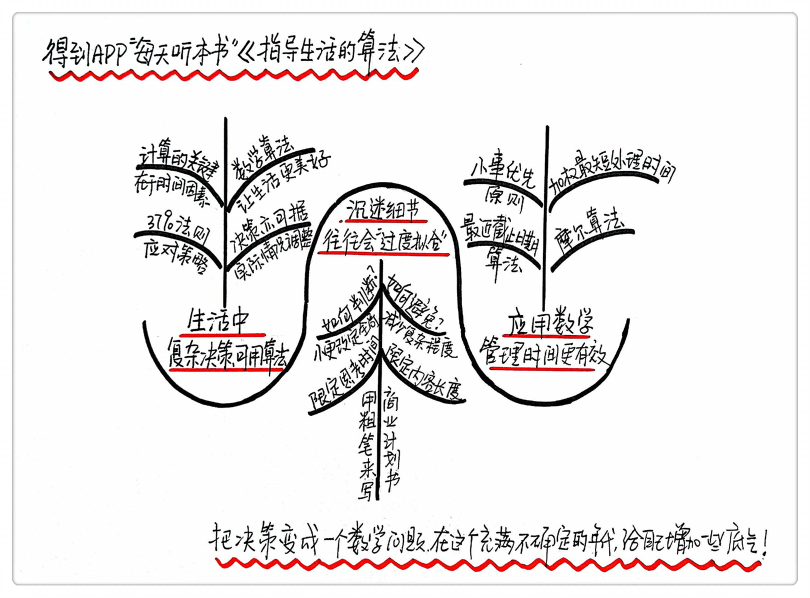 得到APP“每天听本书”《指导生活的算法》
计算的关键
在于时间因素
数学算法
让生活更美好
37%法则
应对策略
决策亦可据
实际情况调整
生活中
复杂决策可用算法
沉迷细节
往往会“过度拟合”
如何判断?
小更改定全局
如何避免?
减少复杂程度
限定思考时间
限定内容长度
用粗笔来写
商业计划书
小事优先
原则
加权最短处理时间
最近截止日期
算法
摩尔算法
应用数学
管理时间更有效
把决策变成一个数学问题,在这个充满不确定的年代,给自己增加一些底气!